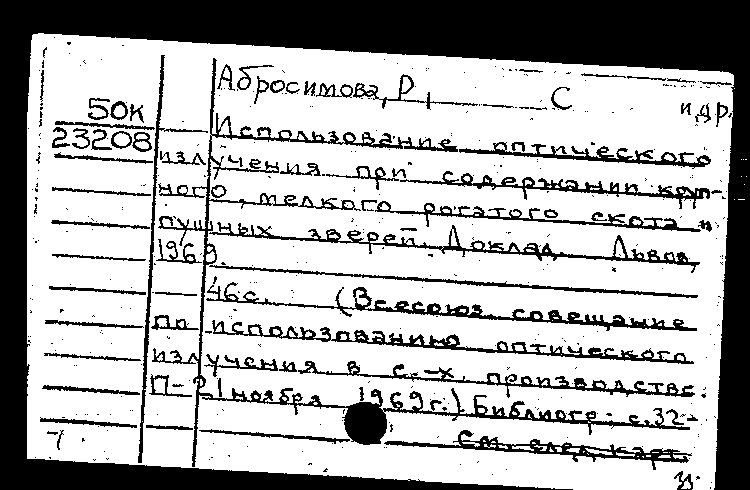 Абросимова, Р, С и др.
50К
23208
Использование оптического
излучения при содержании круп-
ного, мелкого рогатого скота и
пушных зверей. Доклад. Львов,
1969.
46с. (Всесоюз. совещание
по использованию оптического
излучения в с.-х. производстве.
П-21 ноября 1969г.) Библиогр: с.32-
См. след. карт.